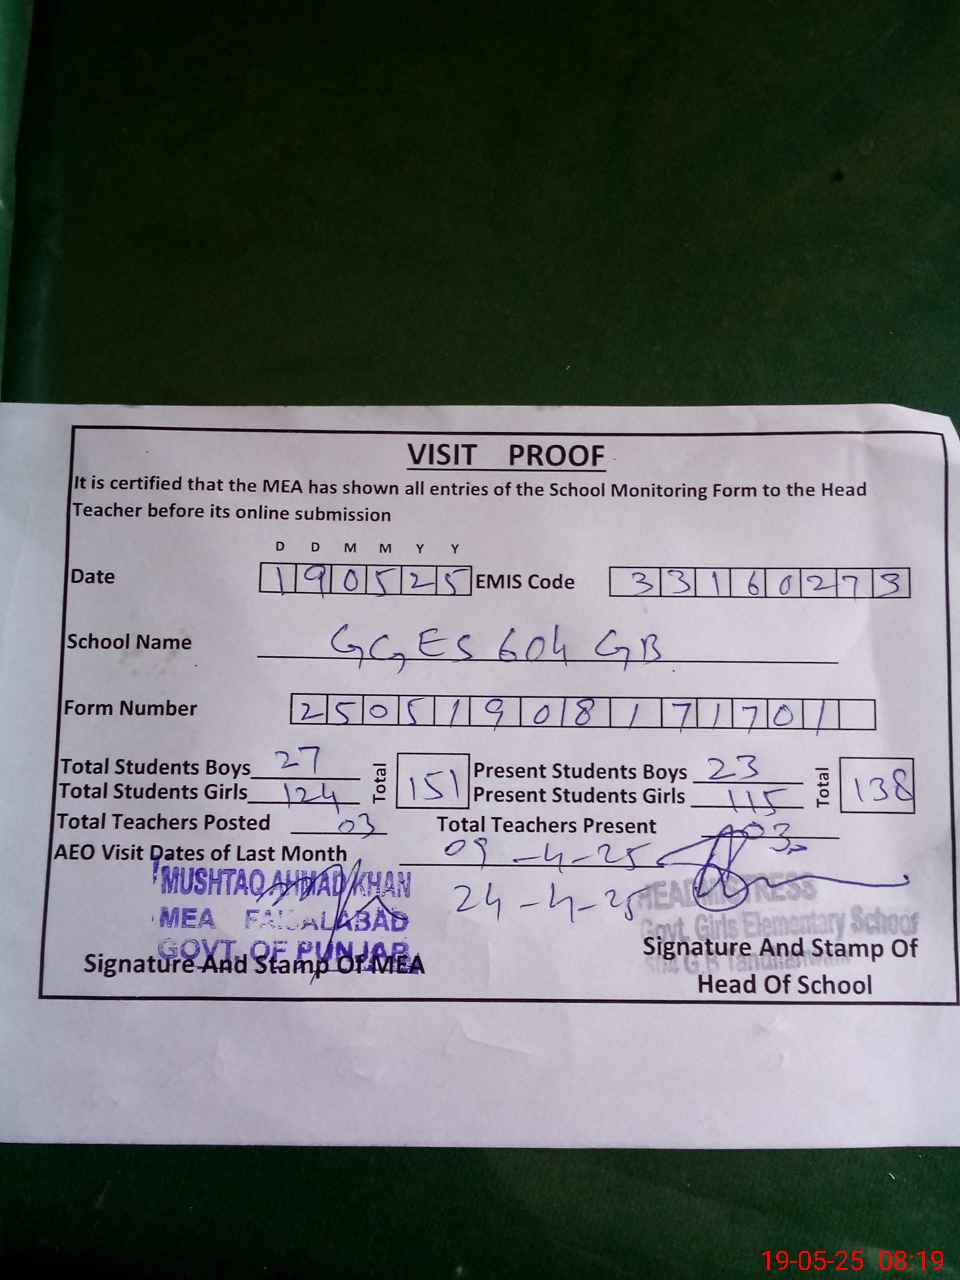 VISIT PROOF
It is certified that the MEA has shown all entries of the School Monitoring Form to the Head
Teacher before its online submission
D D M M Y Y
Date 190525 EMIS Code 33160273
School Name GGES 604 GB
Form Number 25051908171701
Total Students Boys 27 Total 151 Present Students Boys 23 Total 138
Total Students Girls 124 Present Students Girls 115
Total Teachers Posted 03 Total Teachers Present 03
AEO Visit Dates of Last Month 09-4-25
24-4-25
MUSHTAQ AHMAD KHAN
MEA FAISALABAD
GOVT. OF PUNJAB
Signature And Stamp Of MEA
HEADMISTRESS
Govt. Girls Elementary School
Signature And Stamp Of
Head Of School
19-05-25 08:19